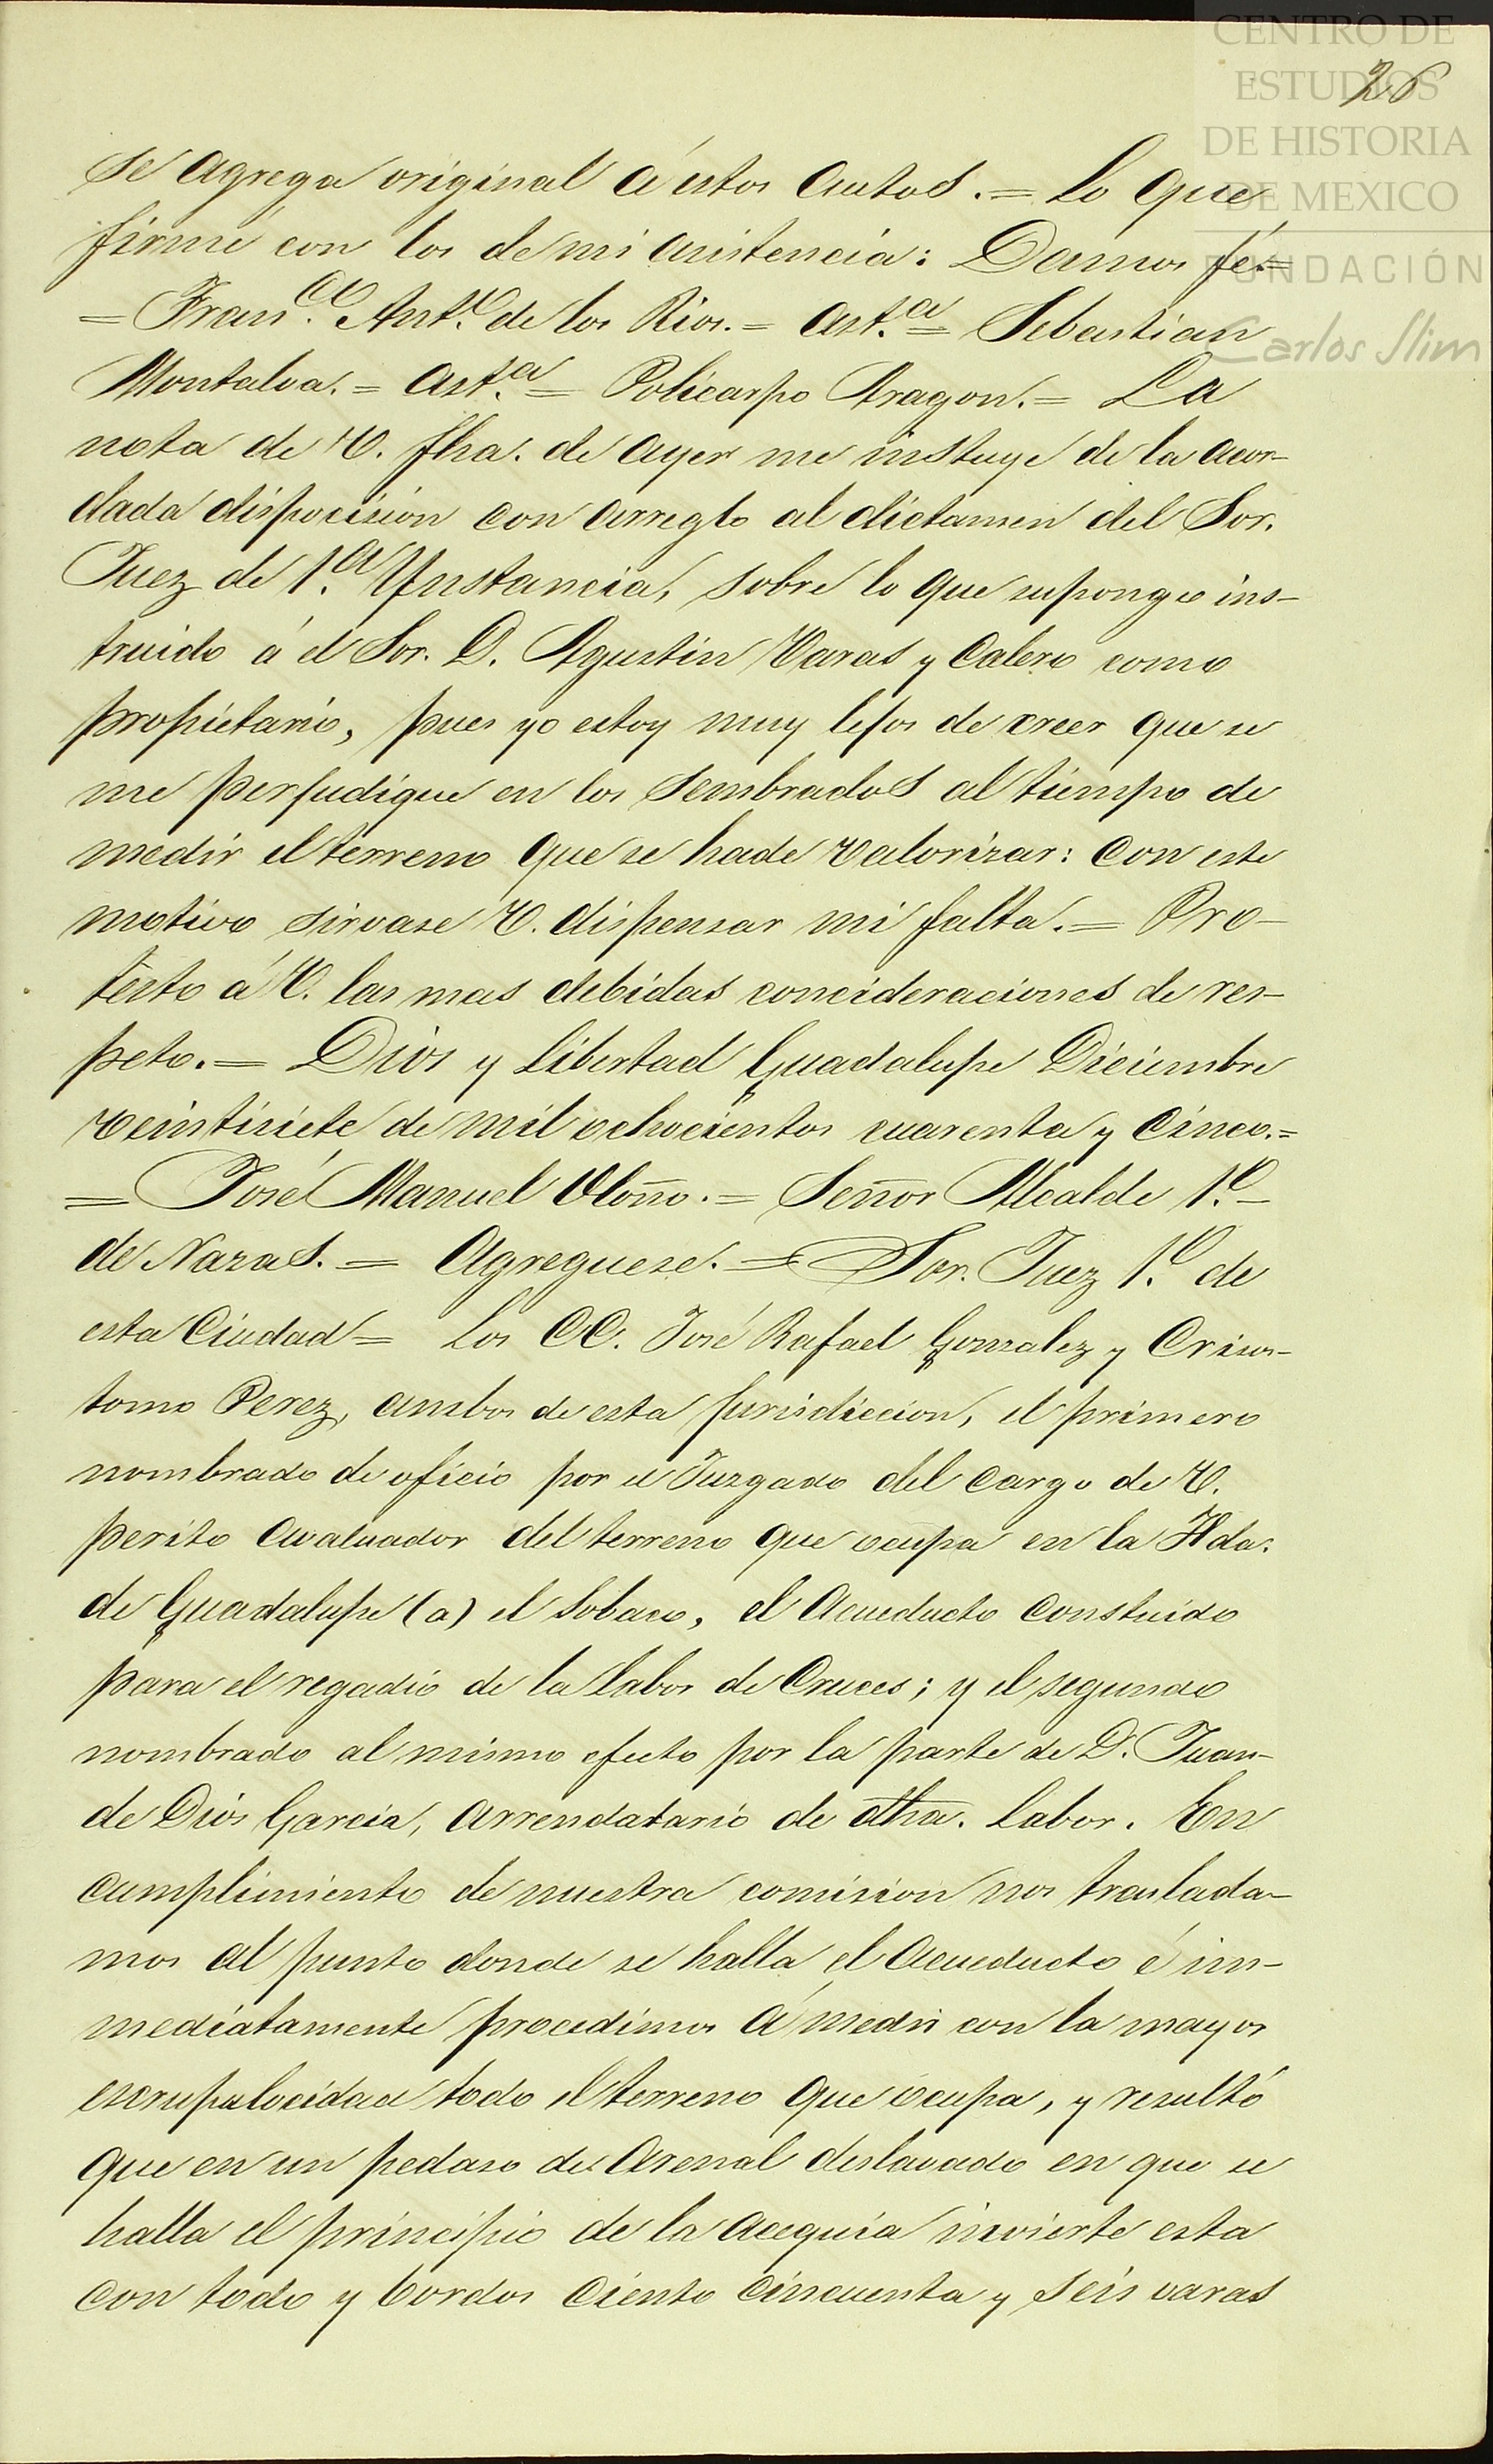 CENTRO DE
ESTUDIOS
DE HISTORIA
DE MEXICO
FUNDACIÓN
Carlos Slim
26
se agrega original á éstos autos.= Lo que
firmé con los de mi asistencia: Damos fé.=
=Fran.co Ant.o de los Rios.= Ast.a= Sebastian
Montalva.= Ast.a= Policarpo Aragon.= La
nota de V. fha. de ayer me instuye de la acor-
dada dispocision con arreglo al dictamen del Sor.
Juez de 1.a Ynstancia, sobre lo que supongo ins-
truido á el Sor. D. Agustin Varas y Calero como
propietario, pues yo estoy muy lejos de creer que se
me perjudique en los sembrados al tiempo de
medir el terreno que se hade valorizar: con este
motivo sirvase V. dispensar mi falta.= Pro-
testo á V. las mas debidas concideraciones de res-
peto.= Dios y Libertad Guadalupe Diciembre
veintisiete de mil ochocientos cuarenta y cinco.=
= José Manuel Oloño.= Señor Alcalde 1.o-
de Nazas.= Agreguese.= Sor. Juez 1.o de
esta Ciudad= Los CC. José Rafael Gonzalez y Crisos-
tomo Perez, ambos de esta jurisdiccion, el primero
nombrado de oficio por el Juzgado del cargo de V.
perito avaluador del terreno que ocupa en la Hda.
de Guadalupe (a) el Sobaco, el Acueducto constuido
para el regadio de la labor de Cruces; y el segundo
nombrado al mismo efecto por la parte de D. Juan-
de Dios Garcia, arrendatario de dha. labor. En
cumplimiento de nuestra comision nos traslada-
mos al punto donde se halla el Acueducto é in-
mediatamente procedimos á medir con la mayor
escrupulocidad todo el terreno que ocupa, y resultó
que en un pedaso de Arenal deslavado en que se
halla el principio de la acequia invierte esta
con todo y bordos ciento cincuenta y seis varas